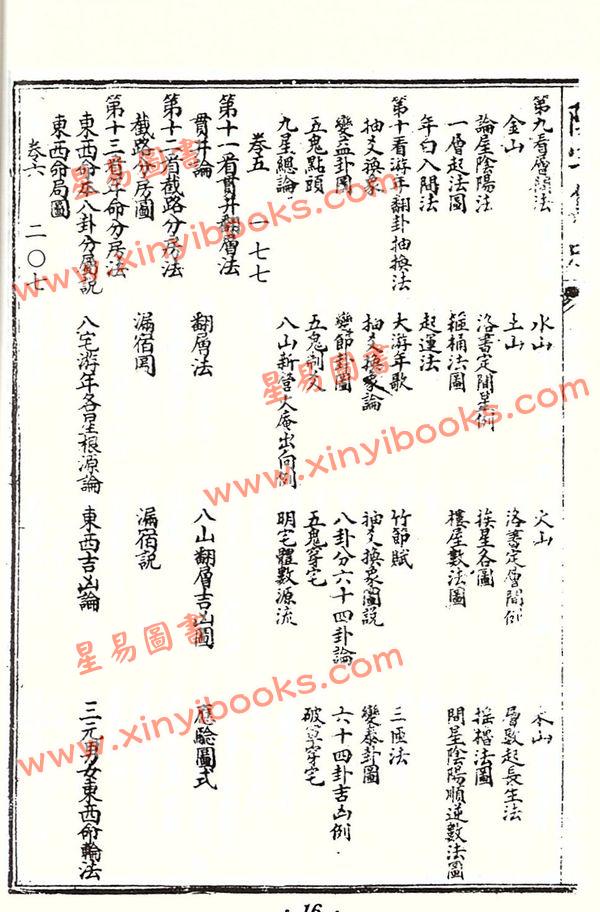 第九看層法 水山 火山 木山
金山 土山 洛書定層間例 層數起長生法
論屋陰陽法 洛書定間星例 挨星各圖 搖櫓法圖
一層起法圖 箍桶法圖 樓屋數法圖 間星陰陽順逆數法圖
年白入間法 起運法
第十看游年翻卦抽換法 大游年歌 竹節賦 三匝法
抽爻換象 抽爻換象論 抽爻換象圖說 變泰卦圖
變益卦圖 變節卦圖 八卦分六十四卦論 六十四卦吉凶例
五鬼點頭 五鬼 五鬼穿宅 破軍穿宅
九星總論 八山新舊大庵出向例 明宅體數源流
卷五 一七七
第十一看貫井翻層法
貫井論 翻層法 八山翻層吉凶圖 應驗圖式
第十二看截路分房法
截路分房圖 漏宿圖 漏宿說
第十三看年命分房法
東西命本八卦分屬說 八宅游年各星根源論 東西吉凶論 三元男女東西命輪法
東西命局圖
卷六 二〇七
· 16 ·
星易圖書
www.xinyibooks.com
星易圖書
www.xinyibooks.com
星易圖書
www.xinyibooks.com